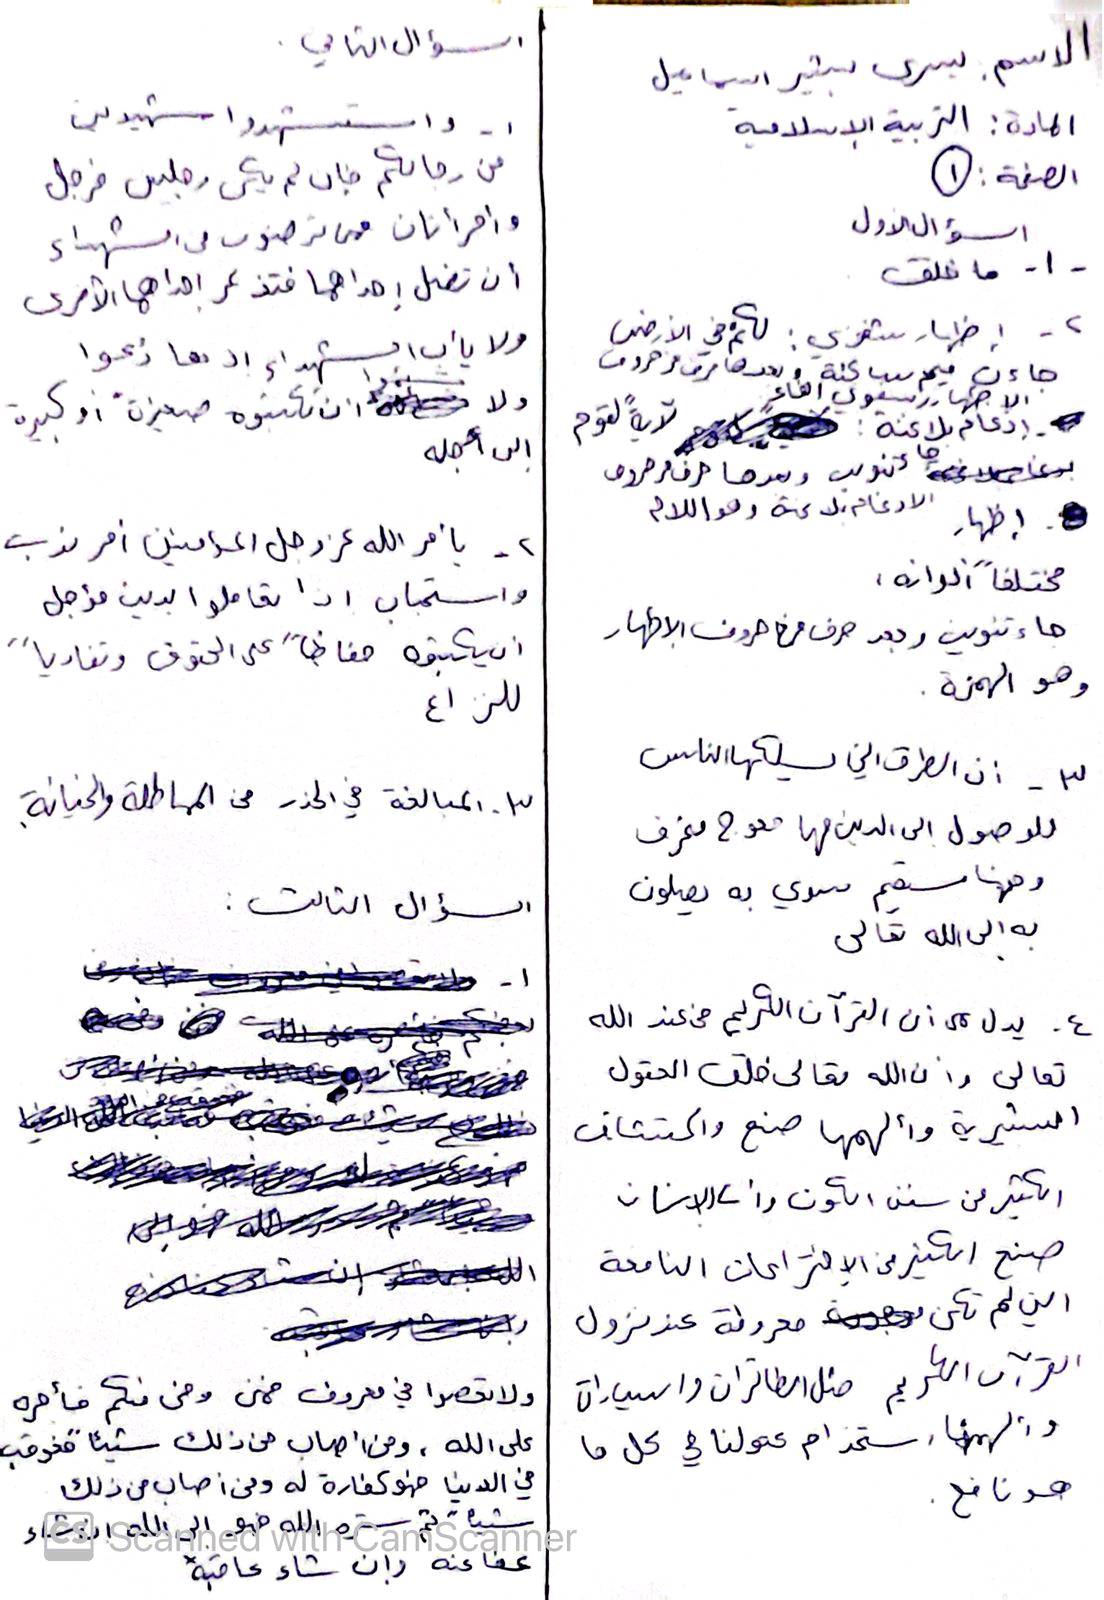 الاسم: يسرى بشير اسماعيل
المادة: التربية الاسلامية
الصفحة: ١
السؤال الاول
١- ما خلق
٢- إظهار شفوي: لكم في الارض
جاءت ميم ساكنة وبعدها حرف من حروف
الاظهار الشفوي الفاء
إدغام بلا غنة: لآيةً لقوم
جاء تنوين وبعدها حرف من حروف
الادغام بلا غنة وهو اللام
إظهار
مختلفاً ألوانه:
جاء تنوين وبعد حرف من حروف الاظهار
وهو الهمزة.
٣- أن الطرق التي يسلكها الناس
للوصول إلى الدين منها معوج منحرف
ومنها مستقيم سوي به يصلون
به إلى الله تعالى
٤- يدل على أن القرآن الكريم من عند الله
تعالى وأن الله تعالى خلق العقول
البشرية وألهمها صنع واكتشاف
الكثير من سنن الكون وأن الإنسان
صنع الكثير من الإختراعات النافعة
التي لم تكن معروفة عند نزول
القرآن الكريم مثل الطائرات والسيارات
وألهمنا استخدام عقولنا في كل ما
هو نافع.
السؤال الثاني.
١- واستشهدوا شهيدين
من رجالكم فإن لم يكن رجلين فرجل
وامرأتان ممن ترضون من الشهداء
أن تضل إحداهما فتذكر إحداهما الأخرى
ولا يأب الشهداء إذ ما دعوا
ولا تسئموا ان تكتبوه صغيرة أو كبيرة
إلى أجله
٢- يأمر الله عز وجل المؤمنين أمر ندب
واستحباب اذا تعاملوا بدين مؤجل
ان يكتبوه حفاظاً على الحقوق وتفادياً
للنزاع
٣- المبالغة في الحذر من المماطلة والخيانة.
السؤال الثالث:
١-
ولا تعصوا في معروف فمن وفى منكم فأجره
على الله، ومن أصاب من ذلك شيئاً فعوقب
في الدنيا فهو كفارة له ومن أصاب من ذلك
شيئاً ثم ستره الله فهو إلى الله إن شاء
عفا عنه وإن شاء عاقبه
CS Scanned with CamScanner